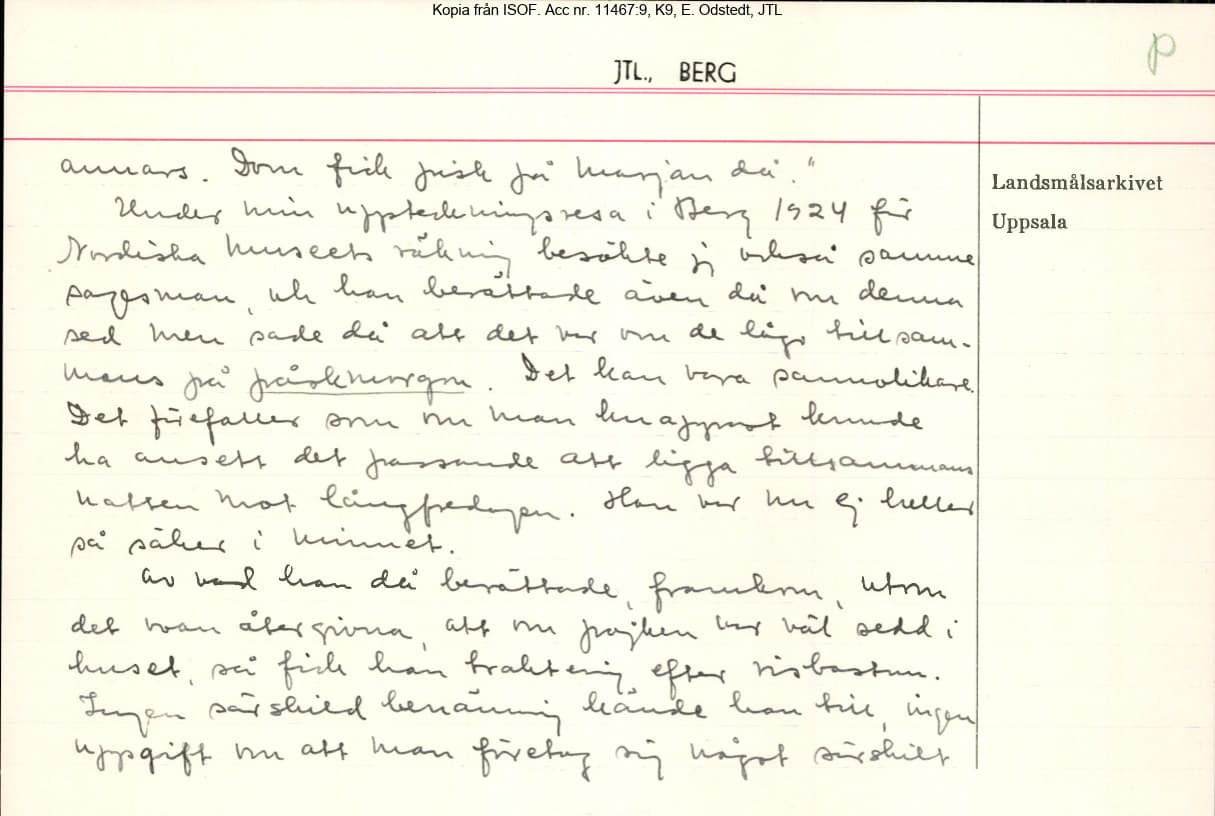 Kopia från ISOF. Acc nr. 11467:9, K9, E. Odstedt, JTL
P
JTL., BERG
Landsmålsarkivet
Uppsala
annars. Dom fick pisk på marjan då."
Under min uppteckningsresa i Berg 1924 för
Nordiska museets räkning besökte jg också samme
sagesman, och han berättade även då om denna
sed men sade då att det var om de lågo tillsam-
mans på påskmorgon. Det kan vara sannolikare.
Det förefaller som om man knappast kunde
ha ansett det passande att ligga tillsammans
natten mot långfredagen. Han var nu ej heller
så säker i minnet.
Av vad han då berättade, framkom, utom
det ovan återgivna, att om pojken var väl sedd i
huset, så fick han traktering efter risbastun.
Ingen särskild benämning kände han till, ingen
uppgift om att man företog sig något särskilt